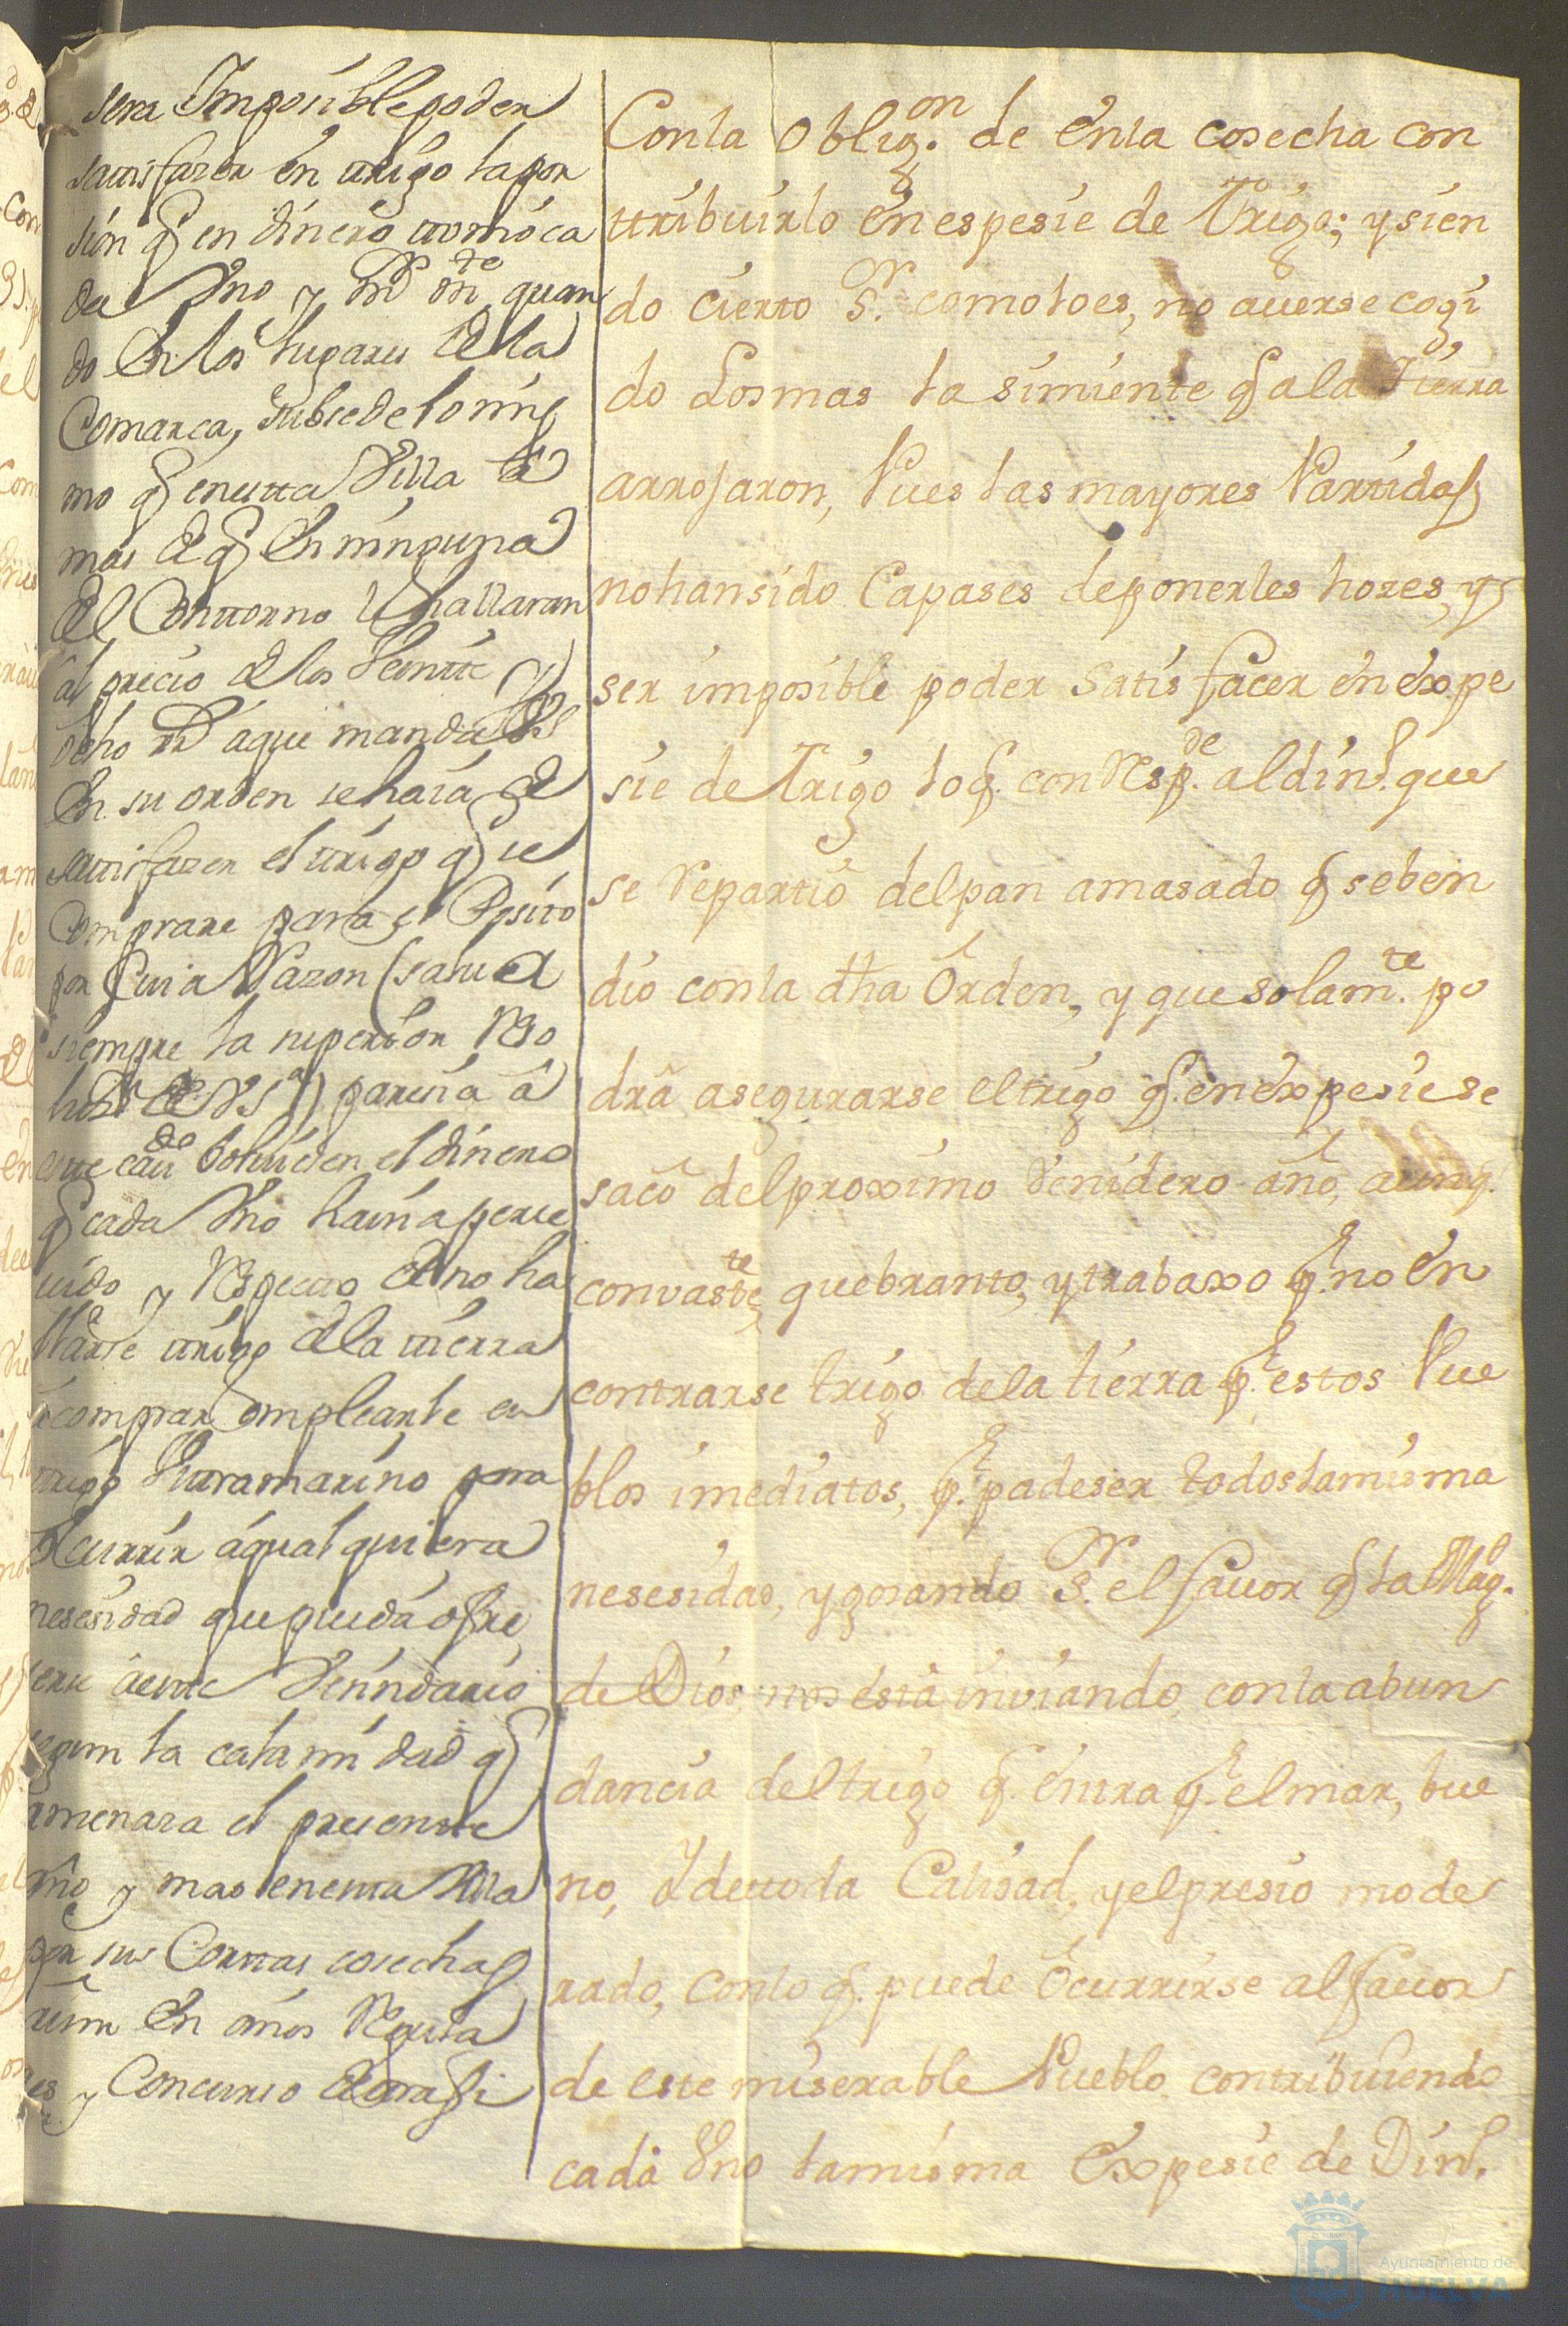 sera Imposible poder
satisfazer en trigo la por
sion q en dinero tomó ca
da Vno y mas quan
do en los lugares de la
Comarca, subsede lo mis
mo q en esta Villa á
mas de q en ninguna
del Contorno se hallaran
ál precio de los Veinte y
ócho rs aque manda VS
en su orden se haia de
satisfazer el trigo q se
Comprare para el Posito
por Cuia Razon (salua
siempre la superior
de VS) paresia á
este cau.do boluiesen el dinero
q cada Vno hauia perse
uido y Respecto de no ha
llarse trigo de la tierra
á comprar emplearle en
trigo Vltramarino para
Ocurrir áqualquiera
nesesidad que pueda ofre
serse á este Vesindario
segun la calamidad q
amenaza el presente
año y mas en esta Villa
por sus Cortas cosechas
aun en años Regula
res y Concurso de
Con la Oblig.on de en la cosecha con
ttribuirlo en espesie de Trigo; y sien
do cierto S.r como lo es, no auerse cogi
do los mas la simiente q a la Tierra
arrojaron, Pues las mayores Partidas
no han sido Capases de ponerles hozes, y
ser imposible poder satisfacer en éxpe
sie de Trigo lo q. con Resp.de al din.o que
se Repartió del pan amasado q se ben
dio con la dha Orden, y que solam.te po
drá asegurarse el trigo q. en éxpesie se
sacó del proximo Venidero año, aunq.
con vast.te quebranto, y trabaxo p.r no en
contrarse trigo de la tierra p.r estos Pue
blos imediatos, p.r padeser todos la misma
nesesidad, y gosando S.r el fauor q la Mag.d
de Dios nos está inviando con la abun
dancia del trigo q. entra p.r el mar, bue
no, y de ttoda Calidad, y el presio mode
rado, con lo q. puede Ocurrirse al fauor
de este miserable Pueblo contribuiendo
cada Vno la misma éxpesie de Din.o
Ayuntamiento de
HUELVA